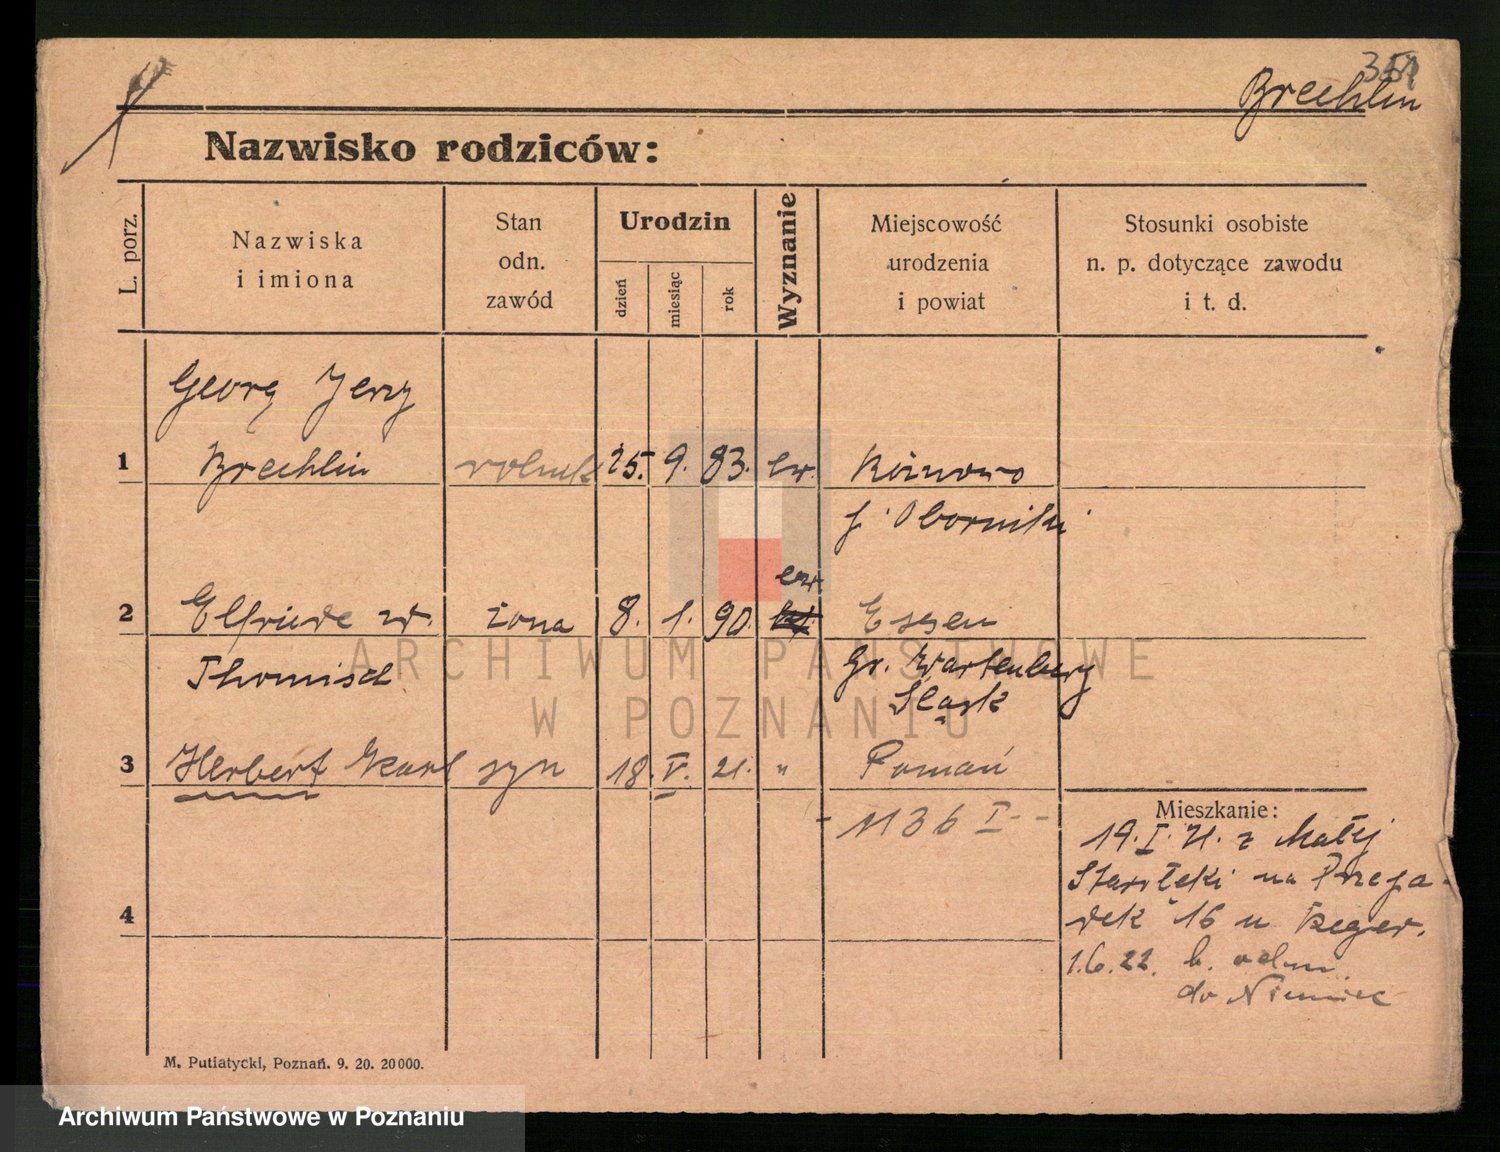 351
Brechlin
Nazwisko rodziców:
L. porz.
Nazwiska
i imiona
Stan
odn.
zawód
Urodzin
dzień
miesiąc
rok
Wyznanie
Miejscowość
urodzenia
i powiat
Stosunki osobiste
n. p. dotyczące zawodu
i t. d.
Georg Jerzy
1 Brechlin rolnik 25. 9. 83. ew. Rożnowo
Oborniki
ew.
2 Elfriede żona 8. 1. 90. Essen
Thomisch Gr. Wartenberg
Śląsk
3 Herbert Karl syn 18. V. 21. " Poznań
- 1136 I - -
Mieszkanie:
19. I. 21. z Małej
Starołęki na Przepa-
dek 16 u Beger.
1.6.22. b. odm.
do Niemiec
4
M. Putiatycki, Poznań. 9. 20. 20000.
ARCHIWUM PAŃSTWOWE
W POZNANIU
Archiwum Państwowe w Poznaniu